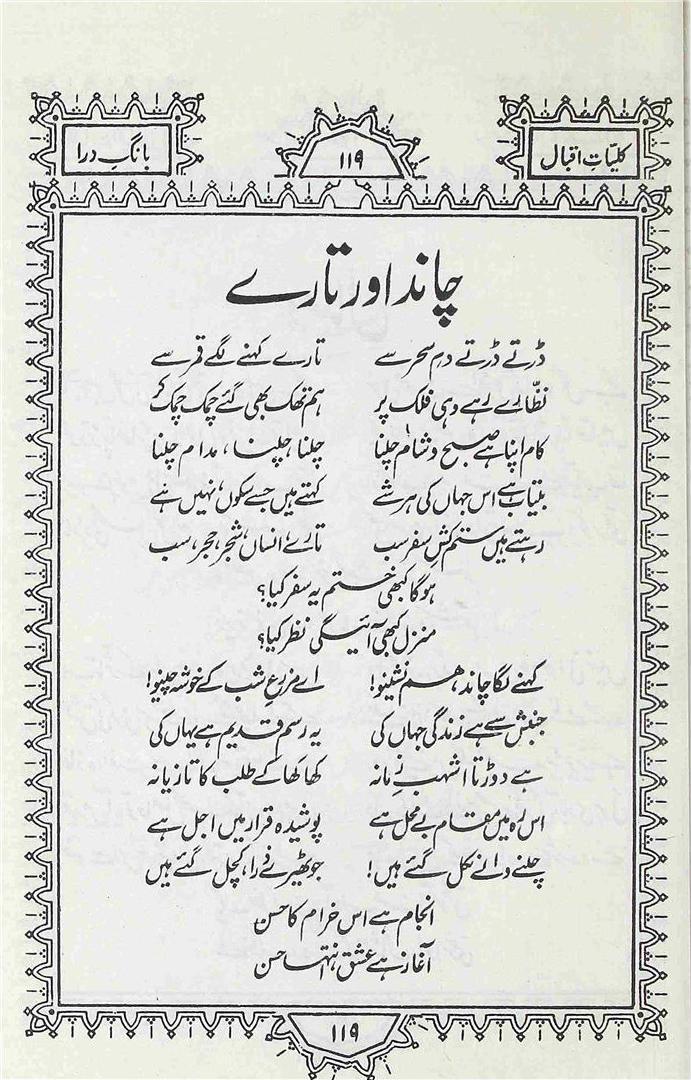 کلیّاتِ اقبال ۱۱۹ بانگِ درا
چاند اور تارے
ڈرتے ڈرتے دمِ سحر سے تارے کہنے لگے قمر سے
نظّارے رہے وہی فلک پر ہم تھک بھی گئے چمک چمک کر
کام اپنا ہے صبح و شام چلنا چلنا، چلنا، مدام چلنا
بیتاب ہے اس جہاں کی ہر شے کہتے ہیں جسے سکوں، نہیں ہے
رہتے ہیں ستم کشِ سفر سب تارے، انساں، شجر، حجر، سب
ہو گا کبھی ختم یہ سفر کیا؟
منزل کبھی آئے گی نظر کیا؟
کہنے لگا چاند، ہم نشینو! اے مزرعِ شب کے خوشہ چینو!
جنبش سے ہے زندگی جہاں کی یہ رسم قدیم ہے یہاں کی
ہے دوڑتا اشہبِ زمانہ کھا کھا کے طلب کا تازیانہ
اس رہ میں مقام بے محل ہے پوشیدہ قرار میں اجل ہے
چلنے والے نکل گئے ہیں! جو ٹھہرے ذرا، کچل گئے ہیں
انجام ہے اس خرام کا حسن
آغاز ہے عشق، انتہا حسن
۱۱۹